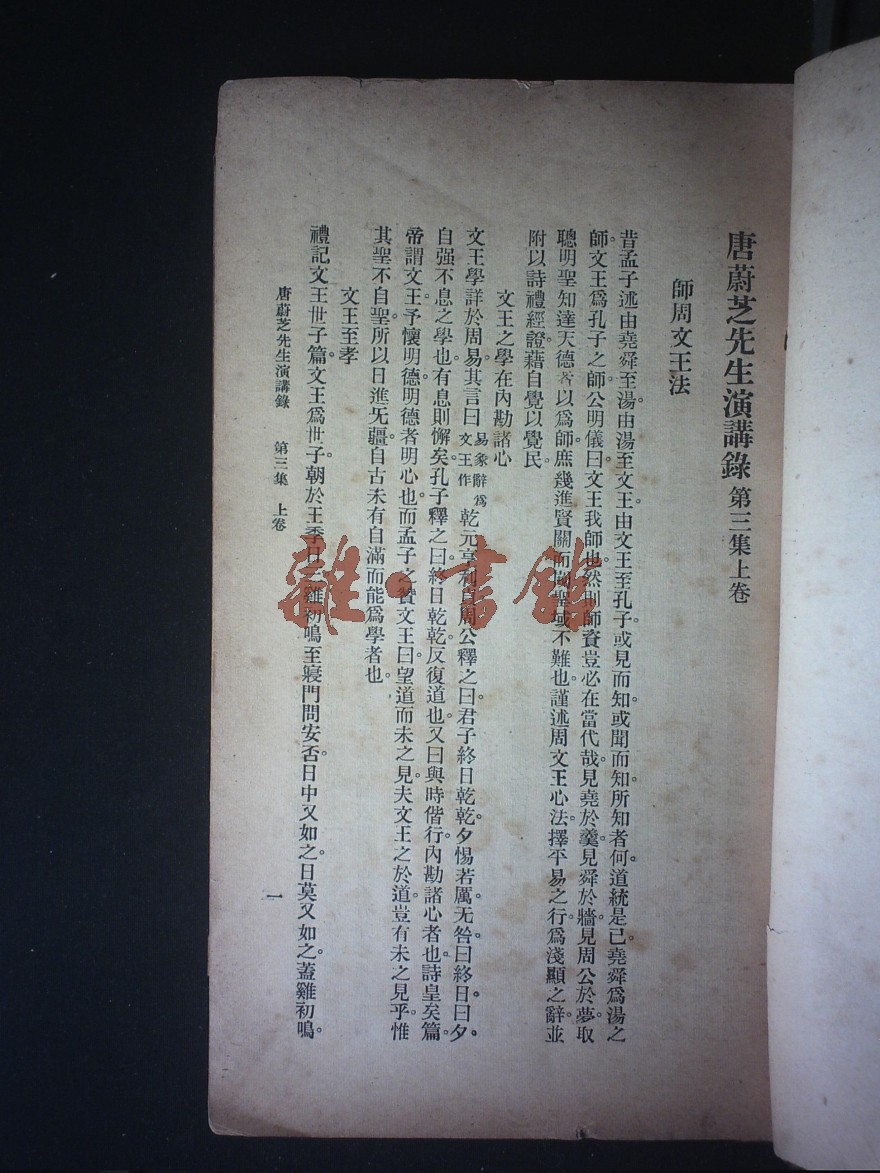 唐蔚芝先生演講錄 第三集上卷
師周文王法
昔孟子述由堯舜至湯。由湯至文王。由文王至孔子。或見而知。或聞而知。所知者何。道統是已。堯舜爲湯之
師。文王爲孔子之師。公明儀曰。文王我師也。然則師資豈必在當代哉。見堯於羹。見舜於牆。見周公於夢。取
聰明聖知達天德者以爲師。庶幾進賢關而閾聖域不難也。謹述周文王心法。擇平易之行。爲淺顯之辭。並
附以詩禮經證。藉自覺以覺民。
文王之學在內勘諸心
文王學詳於周易。其言曰 易彖辭爲文王作 乾元亨利貞。周公釋之曰。君子終日乾乾。夕惕若厲。无咎。曰終日。曰夕。
自强不息之學也。有息則懈矣。孔子釋之曰。終日乾乾。反復道也。又曰。與時偕行。內勘諸心者也。詩皇矣篇。
帝謂文王。予懷明德。明德者明心也。而孟子之贊文王曰。望道而未之見。夫文王之於道。豈有未之見乎。惟
其聖不自聖。所以日進无疆。自古未有自滿而能爲學者也。
文王至孝
禮記文王世子篇。文王爲世子。朝於王季日三。雞初鳴至寢門問安否。日中又如之。日莫又如之。蓋雞初鳴。
唐蔚芝先生演講錄 第三集 上卷 一
雜·書館